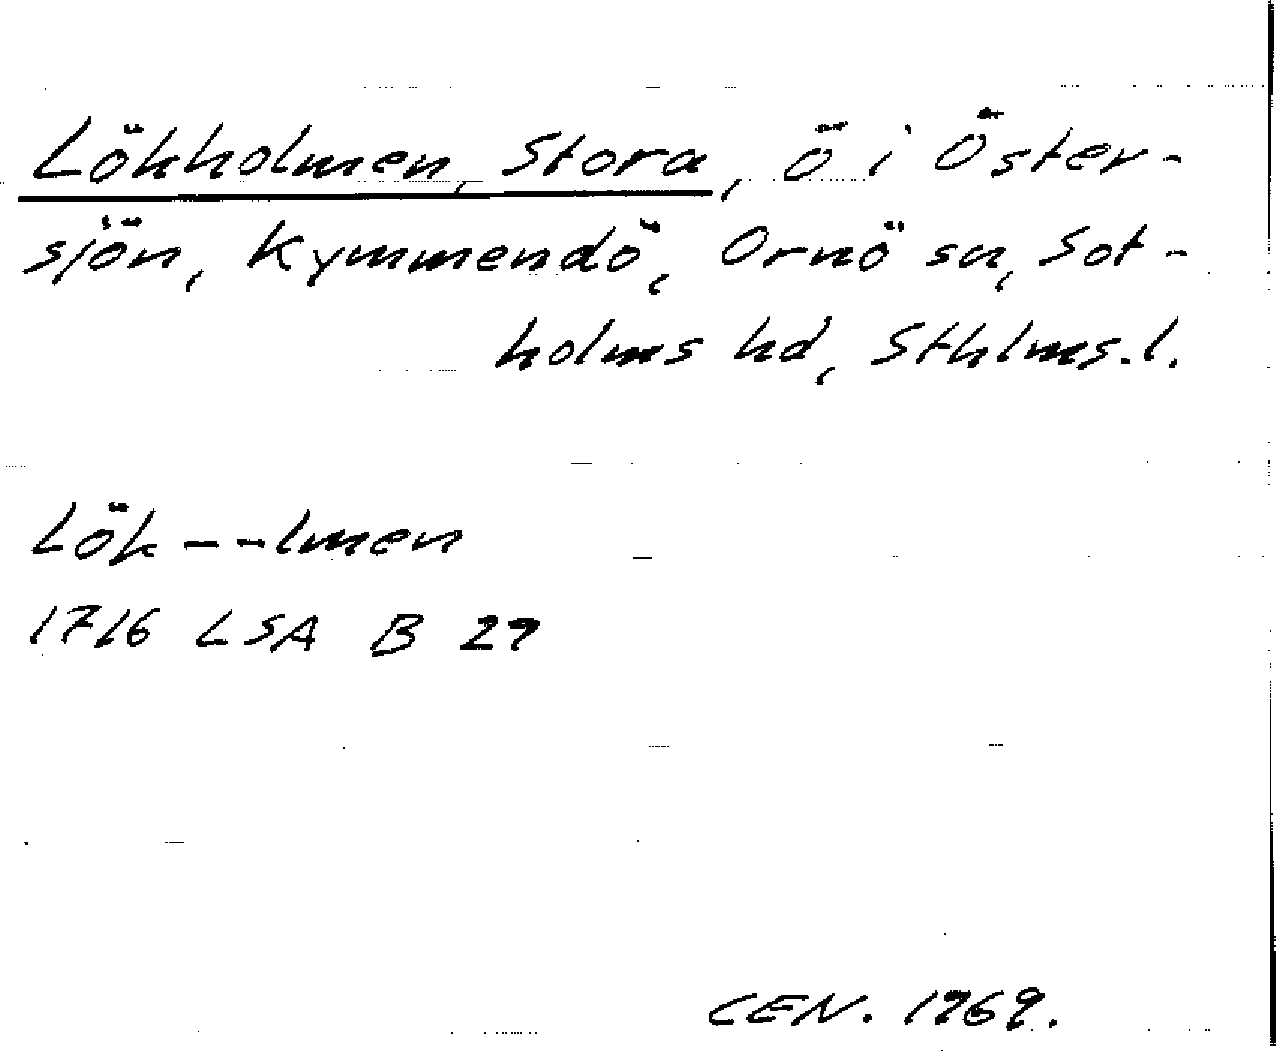 Lökholmen, Stora, ö i Öster-
sjön, Kymmendö, Ornö sn, Sot-
holms hd, Sthlms.l.
Lök--lmen
1716 LSA B 27
CEN. 1969.